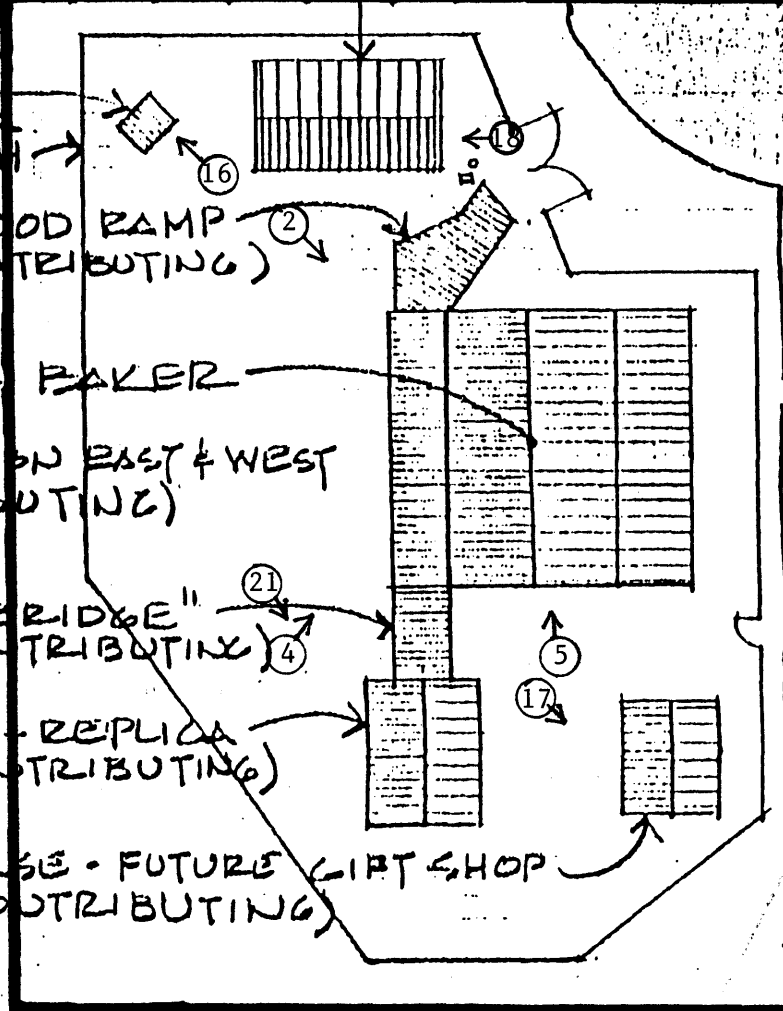 18
16
OD RAMP
2
TRIBUTING)
BAKER
ON EAST & WEST
UTING)
21
RIDGE"
TRIBUTING)
4
5
17
- REPLICA
TRIBUTING)
SE - FUTURE GIFT SHOP
TRIBUTING)